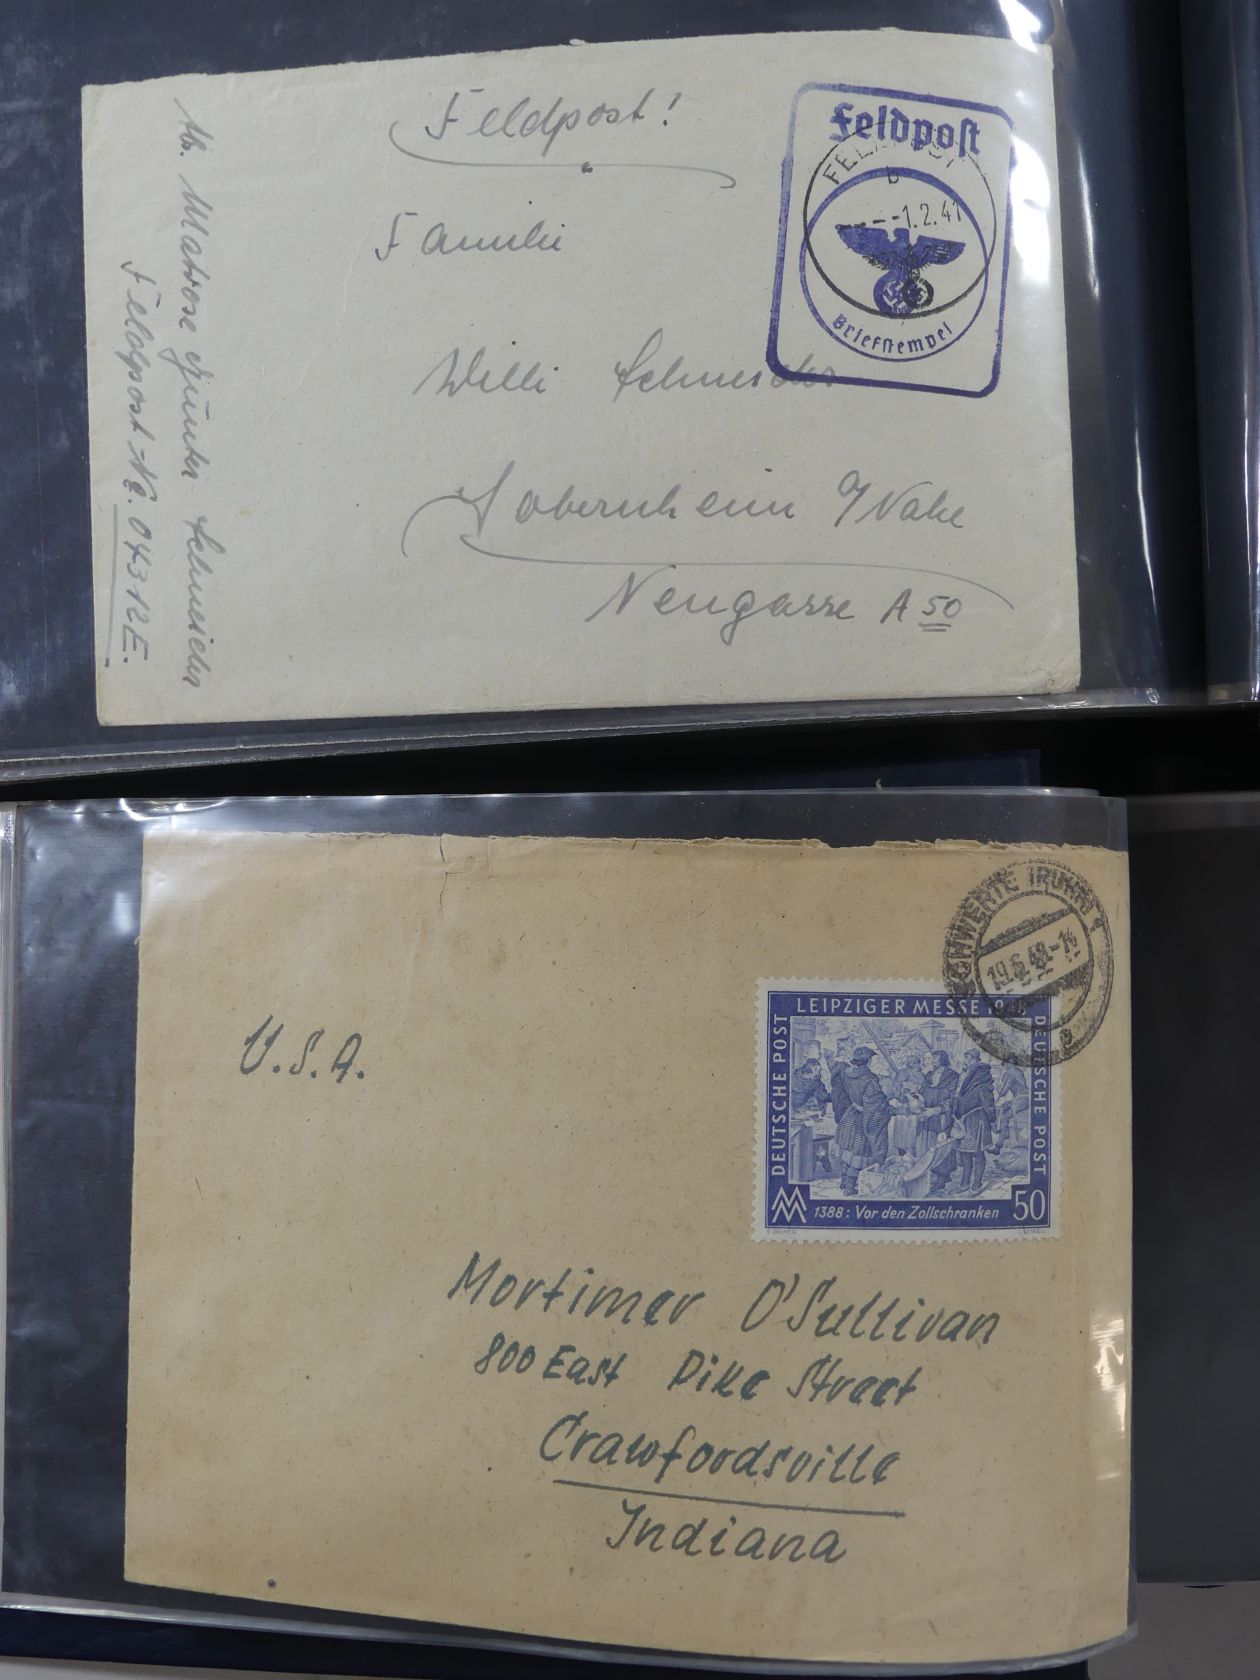 Feldpost!
Feldpost
FELDPOST
b
-1.2.41
Briefstempel
Familie
Willi Schneider
Sobernheim a/Nahe
Neugasse A 50
Matrose Günter Schneider
Feldpost-Nr. 04312E.
SCHWERTE (RUHR) 1
19.6.48.-14
U.S.A.
LEIPZIGER MESSE 1948
DEUTSCHE POST
DEUTSCHE POST
1388: Vor den Zollschranken 50
Mortimer O'Sullivan
800 East Pike Street
Crawfordsville
Indiana